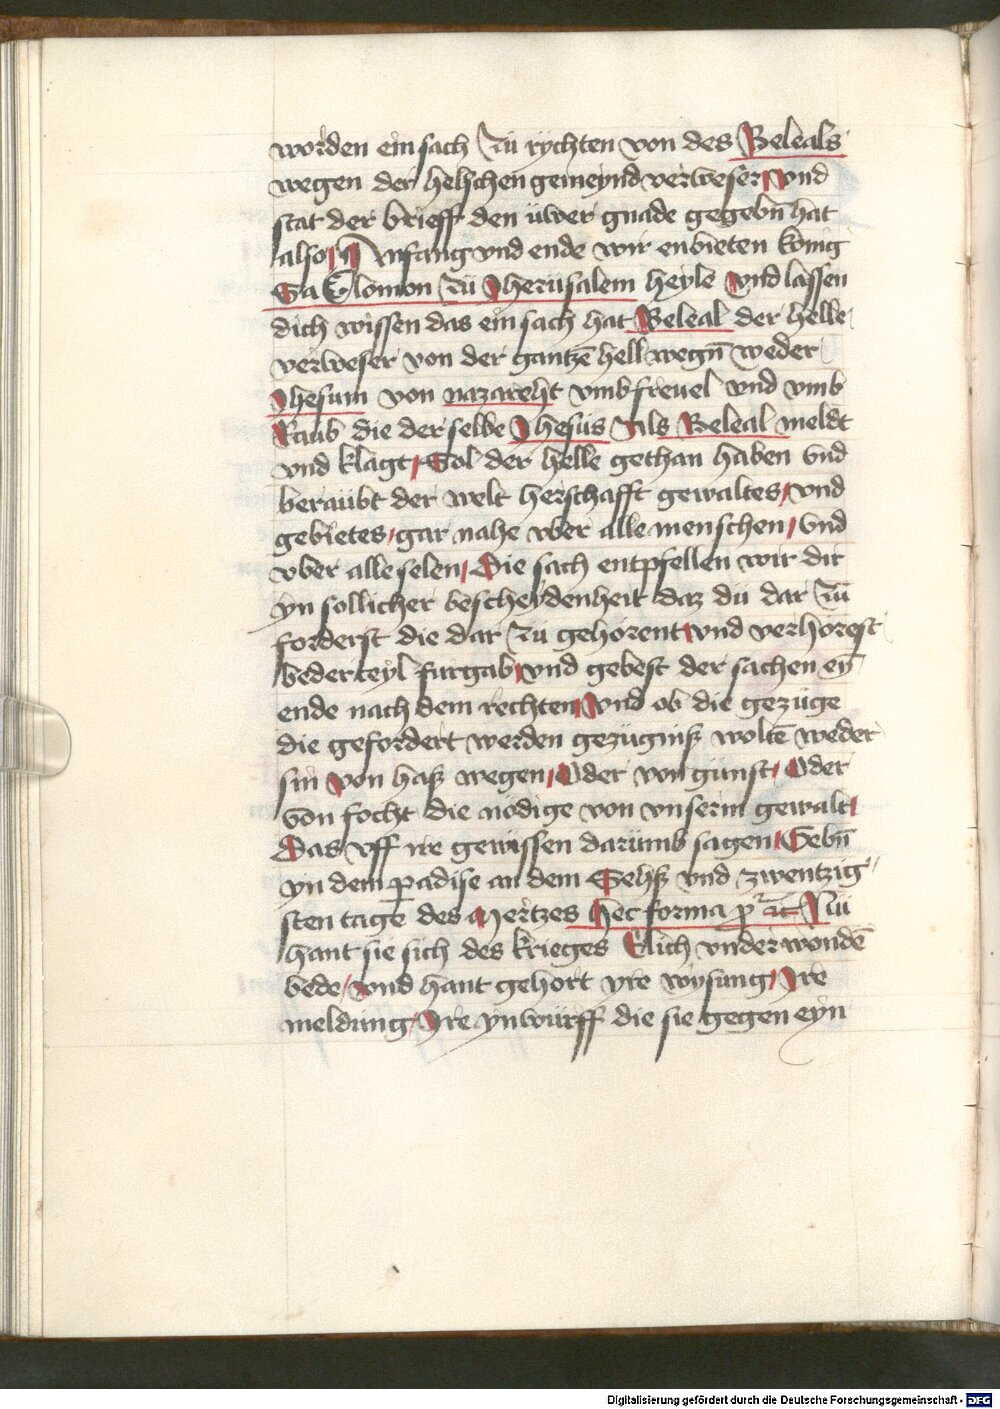 worden ein sach Zü rychten von des Beleals
wegen der helschen gemeynd verweser / vnd
stat der brieff den üwer gnade gegebn̄ hat
also / Anfang vnd ende wir enbieten konig
Sa Elomon Zü Jherusalem heyle vnd lassen
dich wissen das ein sach hat Beleal der helle
verweser von der gantzē hell wegn̄ weder
Jhesum von nazareht vmb freuel vnd vmb
Raub die der selbe Jhesus Als Beleal meldt
vnd klagt / Sol der helle gethan haben vnd
beraubt der welt herschafft gewaltes / vnd
gebietes / gar nahe vber alle menschen / vnd
vber alle selen / Die sach entpfellen wir dir
yn sollicher bescheydenheit daz dü dar Zü
forderst die dar Zü gehorent vnd verhorest
beder teyl furgab / vnd gebest der sachen eȳ
ende nach dem rechten / vnd ob die gezüge
die gefordert werden gezügniß woltē weder
sin von haß wegen / Oder von günst / Oder
von focht die nodige von vnserm gewalt /
Das vff ire gewissen darümb sagen / Gebn̄
yn dem padise an dem Sehß vnd zwentzig
sten tage des Mertzes Hec forma Nü
hant sie sich des krieges vnderwondē
bede / vnd hant gehort yre wysung / Jre
meldung / Jre ynwürff die sie gegen eyn
Digitalisierung gefördert durch die Deutsche Forschungsgemeinschaft - DFG